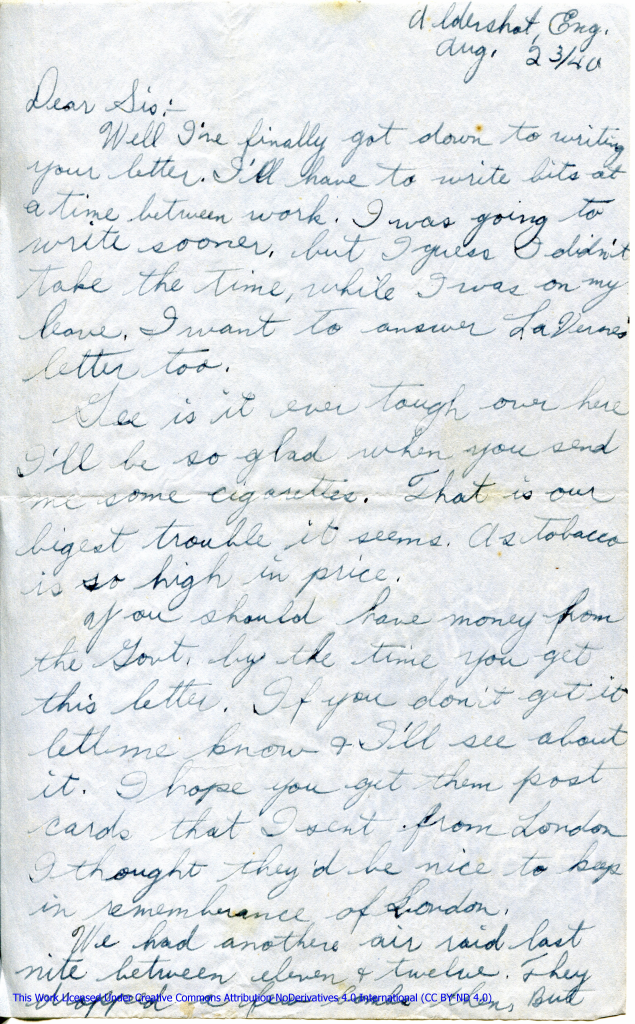 Aldershot, Eng.
Aug. 23/40
Dear Sis:-
Well I've finally got down to writing
your letter. I'll have to write bits at
a time between work. I was going to
write sooner, but I guess I didn't
take the time, while I was on my
leave. I want to answer LaVerne's
letter too.
Gee is it ever tough over here
I'll be so glad when you send
me some cigaretties. That is our
bigest trouble it seems. As tobacco
is so high in price.
You should have money from
the Govt. by the time you get
this letter. If you don't get it
let me know & I'll see about
it. I hope you get them post
cards that I sent from London
I thought they'd be nice to keep
in rememberance of London.
We had anothere air raid last
nite between eleven & twelve. They
dropped a few bombs then, But
This Work Licensed Under Creative Commons Attribution-NoDerivatives 4.0 International (CC BY-ND 4.0)